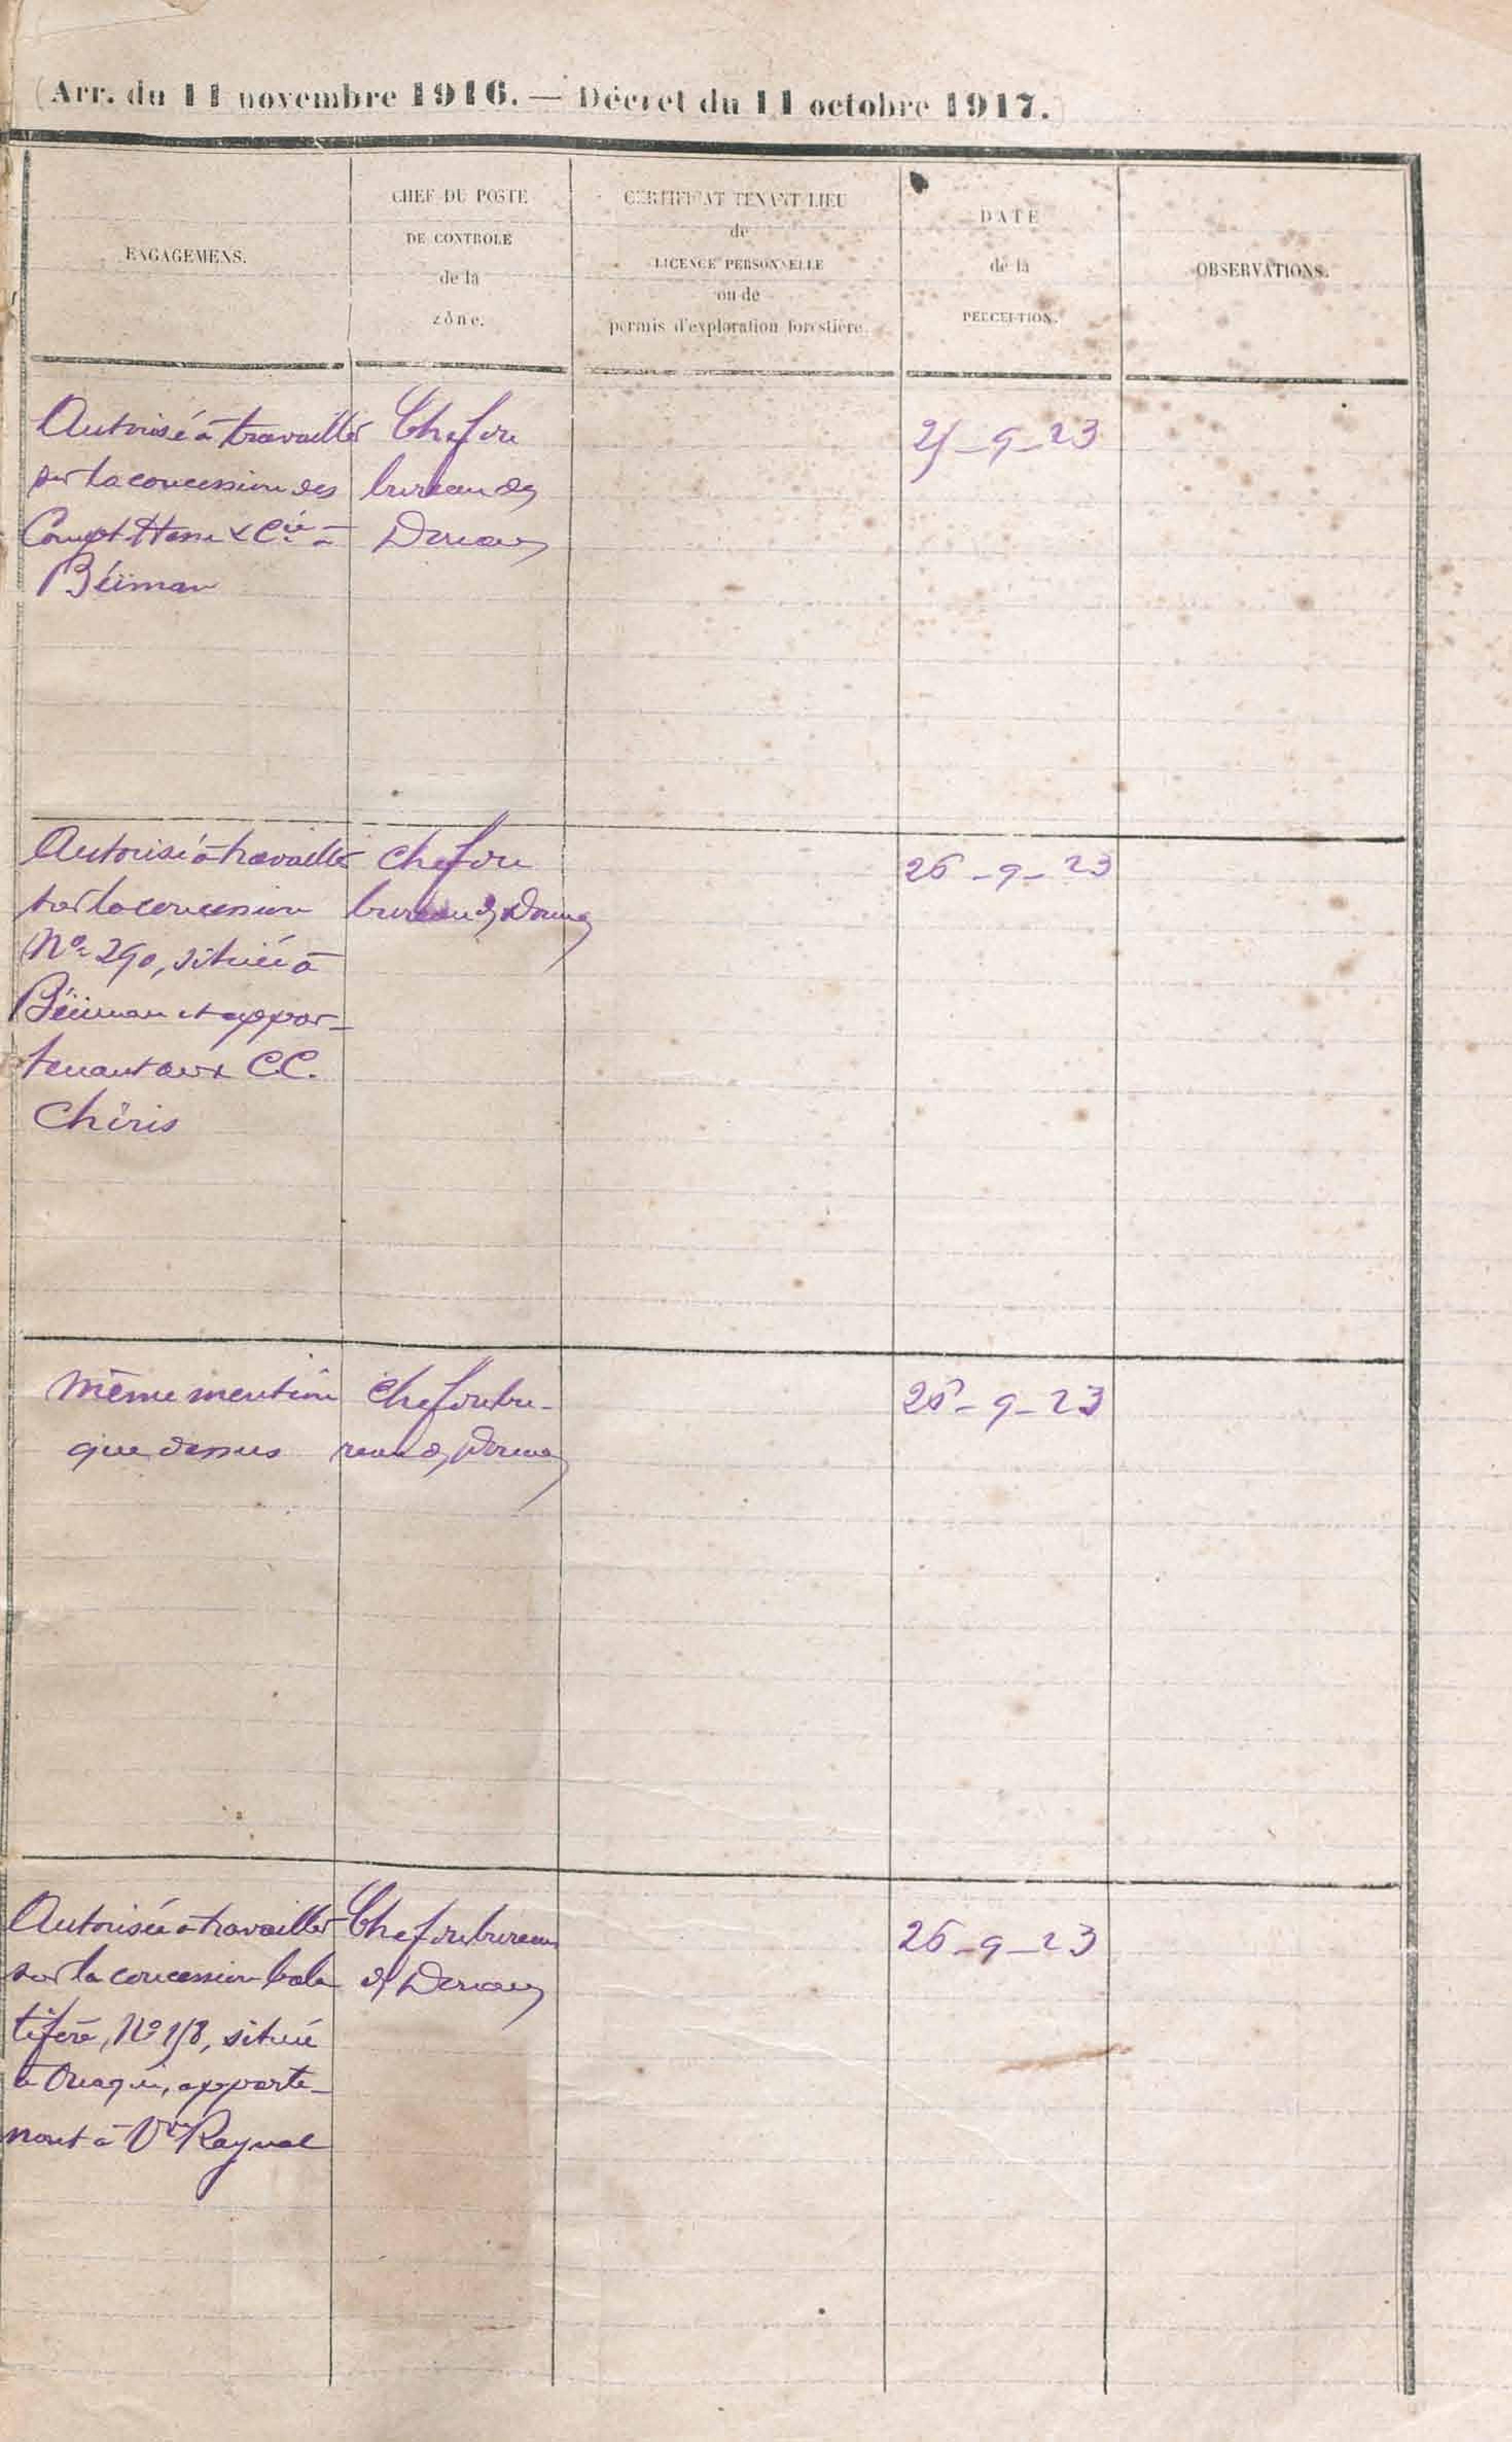 (Arr. du 11 novembre 1916. — Décret du 11 octobre 1917.)
ENGAGEMENS.
CHEF DU POSTE
DE CONTROLE
de la
zône.
CERTIFICAT TENANT LIEU
de
LICENCE PERSONNELLE
ou de
permis d'exploration forestière.
DATE
de la
PERCEPTION.
OBSERVATIONS.
Autorisé à travailler
sur la concession des
Compt. & Cie à
Béiman
Chef du
bureau des
Douanes
25-9-23
Autorisé à travailler
sur la concession
No 290, située à
Béiman et appar-
tenant aux C.C.
Chiris
Chef du
bureau des Douanes
26-9-23
Même mention
que dessus
Chef du bu-
reau des Douanes
26-9-23
Autorisée à travailler
sur la concession bala
tifère, No 158, située
à Ouaqui, apparte-
nant à Vve Raynal
Chef du bureau
des Douanes
26-9-23